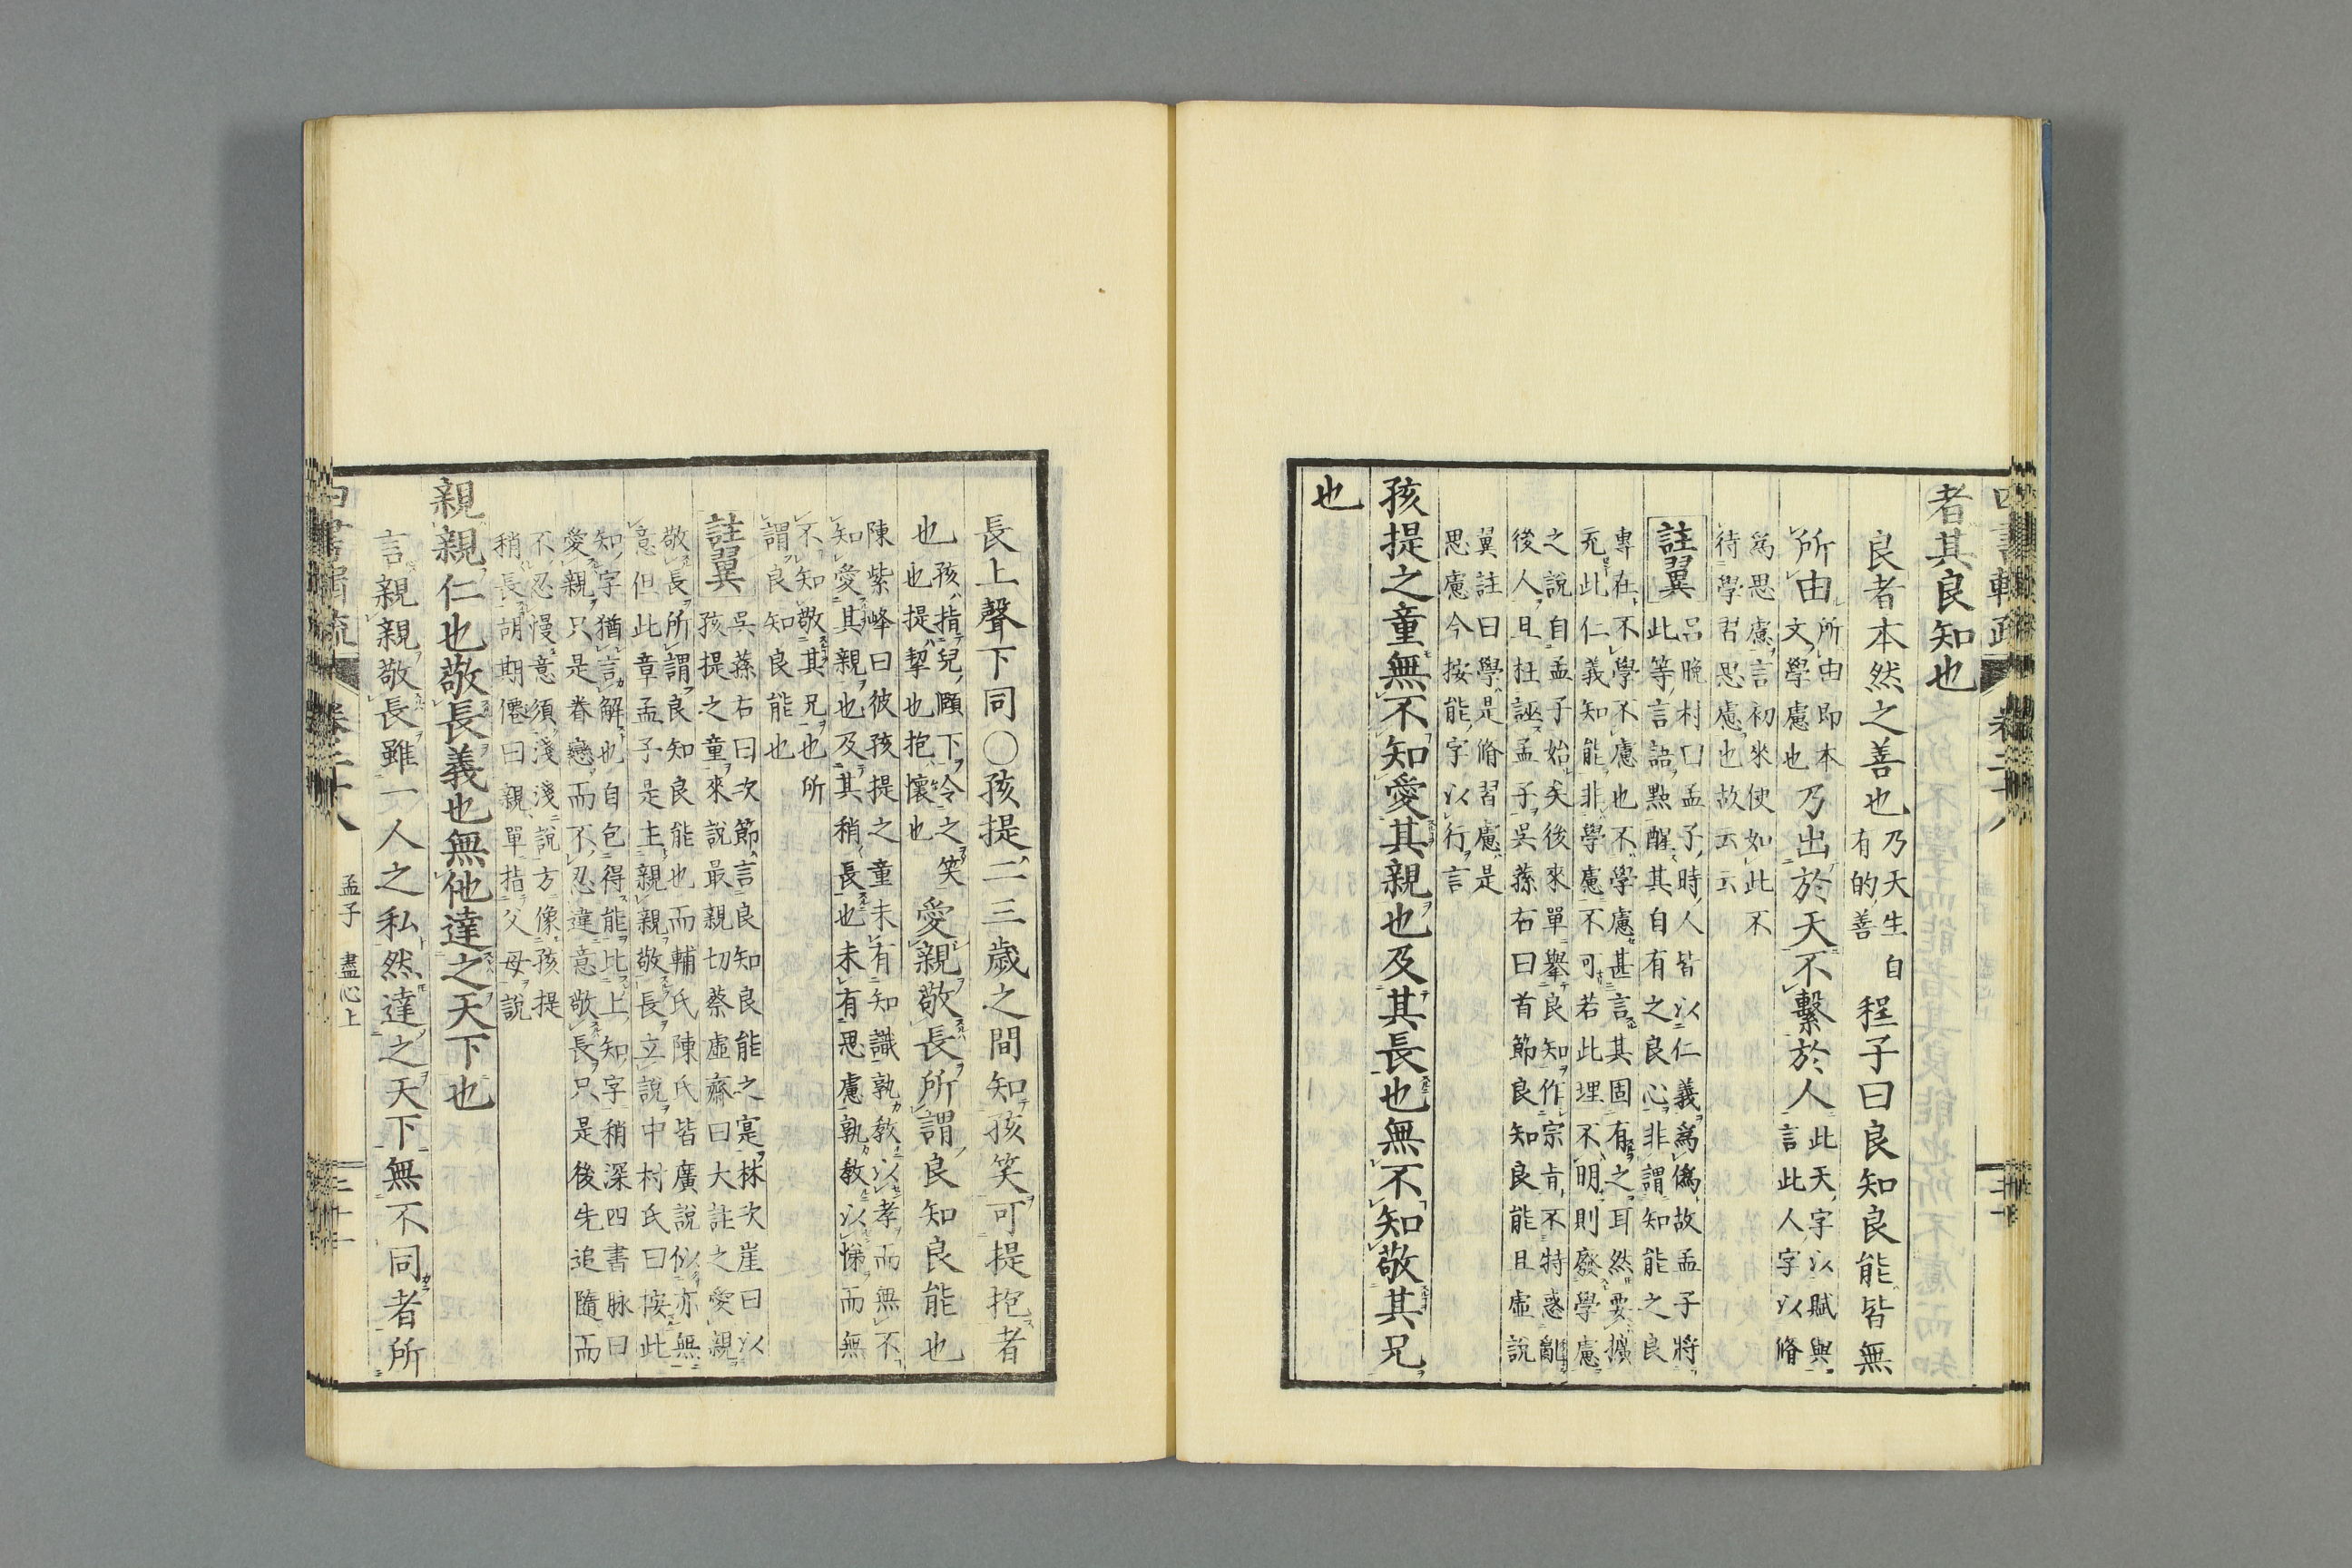 者其良知也
良者本然之善也乃天生自有的善程子曰良知良能皆無
所由所由即本文學慮也乃出於天不繫於人此天字以賦與言此人字以脩
爲思慮言初來使如此不
待學習思慮也故云云
註翼呂晚村曰孟子時人皆以仁義爲僞故孟子將
此等言語點醒其自有之良心非謂知能之良
專在不學不慮也不學慮甚言其固有之耳然要擴
充此仁義知能非學慮不可若此理不明則廢學慮
之說自孟子始矣後來單舉良知作宗旨不特惑亂
後人且枉誣孟子吳蓀右曰首節良知良能且虛說
翼註曰學是脩習慮是
思慮今按能字以行言
孩提之童無不知愛其親也及其長也無不知敬其兄
也
長上聲下同○孩提二三歲之間知孩笑可提抱者
也孩指兒頤下令之笑也提挈也抱懷也愛親敬長所謂良知良能也
陳紫峰曰彼孩提之童未有知識孰教以孝而無不
知愛其親也及其稍長也未有思慮孰教以悌而無
不知敬其兄也所
謂良知良能也
註翼吳蓀右曰次節言良知良能之寔林次崖曰以
孩提之童來說最親切蔡虛齋曰大註之愛親
敬長所謂良知良能也而輔氏陳氏皆廣說似亦無
意但此章孟子是主親親敬長立說中村氏曰按此
知字猶言解也自包得能比上知字稍深四書脉曰
愛親只是眷戀而不忍違意敬長只是後先追隨而
不忍慢意須淺淺說方像孩提
稍長胡期僊曰親單指父母說
親親仁也敬長義也無他達之天下也
言親親敬長雖一人之私然達之天下無不同者所
孟子 盡心上